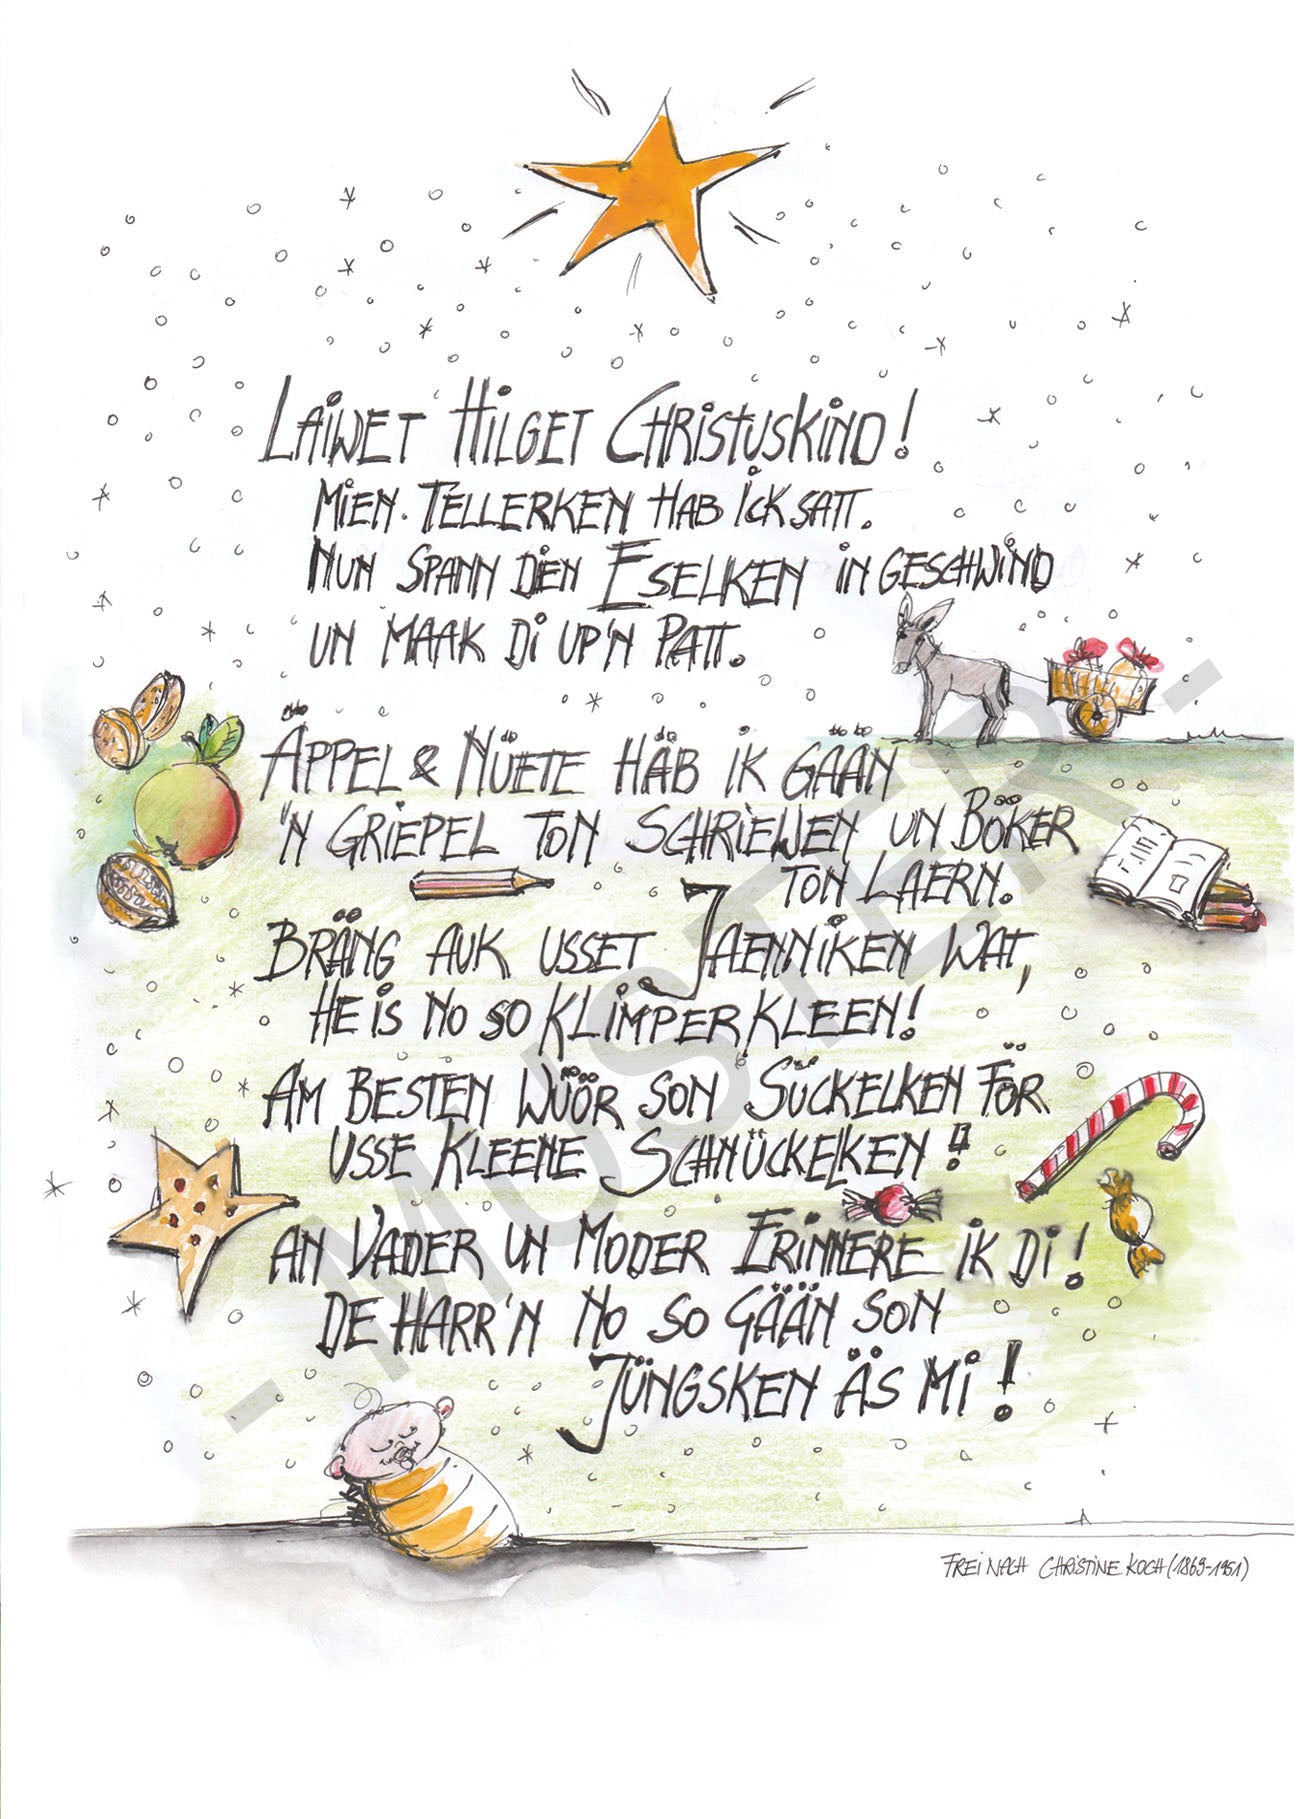 Laiwet Hilget Christuskind!
Mien Tellerken hab ick satt.
Nun spann dien Eselken in geschwind
un maak di up'n Patt.
Äppel & Nüete häb ik gään
'n Griepel ton schriewen un Böker
ton laern.
Bräng auk usset Jaenniken wat,
he is no so klimperkleen!
Am besten wüör son Sückelken för
usse kleene Schnückelken!
An Vader un Moder erinnere ik di!
De harr'n no so gään son
Jüngsken äs mi!
Frei nach Christine Koch (1869-1951)
- MUSTER -